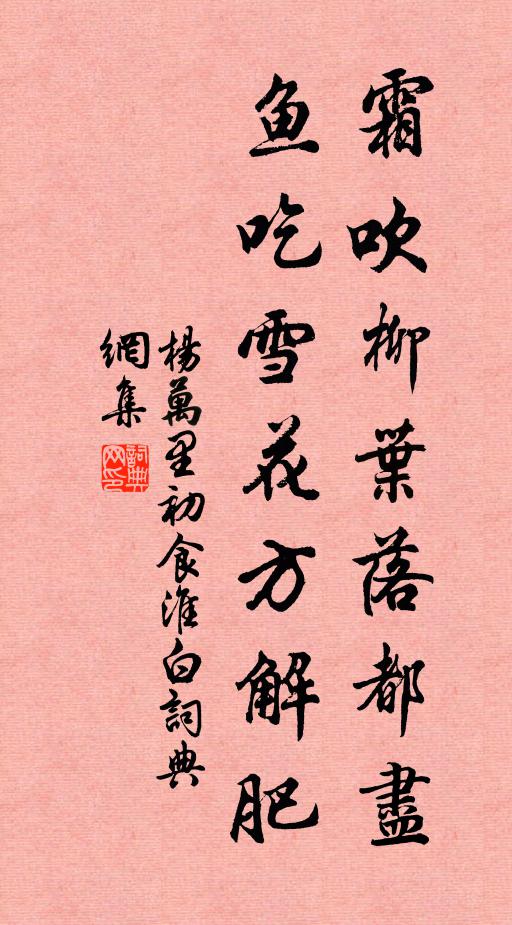 霜吹柳葉落都盡
鱼吃雪花方解肥
楊萬里初食淮白詞典
網集
詞典
网印